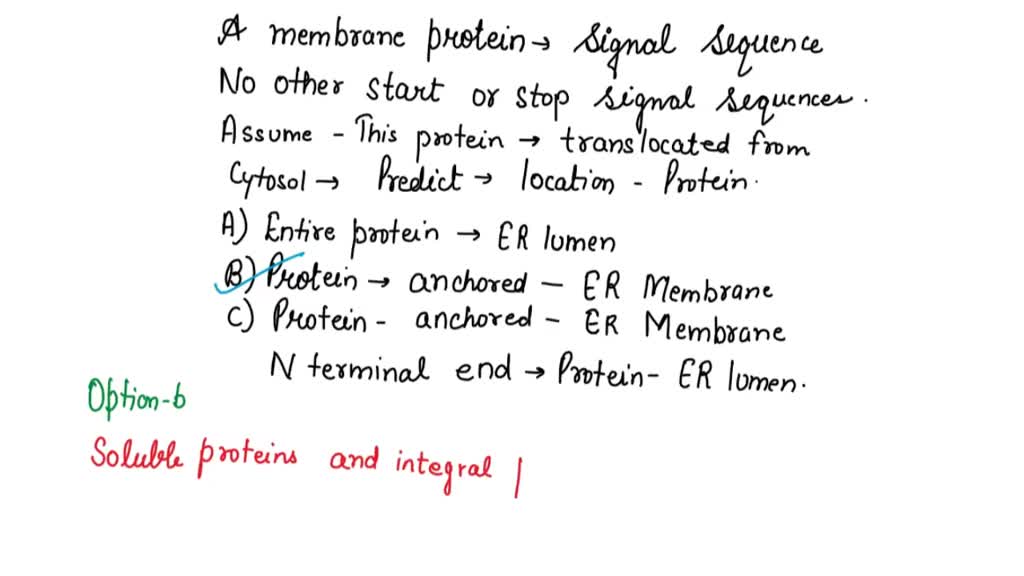 A membrane protein → signal sequence
No other start or stop signal sequences.
Assume - This protein → translocated from
Cytosol → Predict → location - Protein.
A) Entire protein → ER lumen
B) Protein → anchored - ER Membrane
C) Protein - anchored - ER Membrane
N terminal end → Protein - ER lumen.
Option-b
Soluble proteins and integral